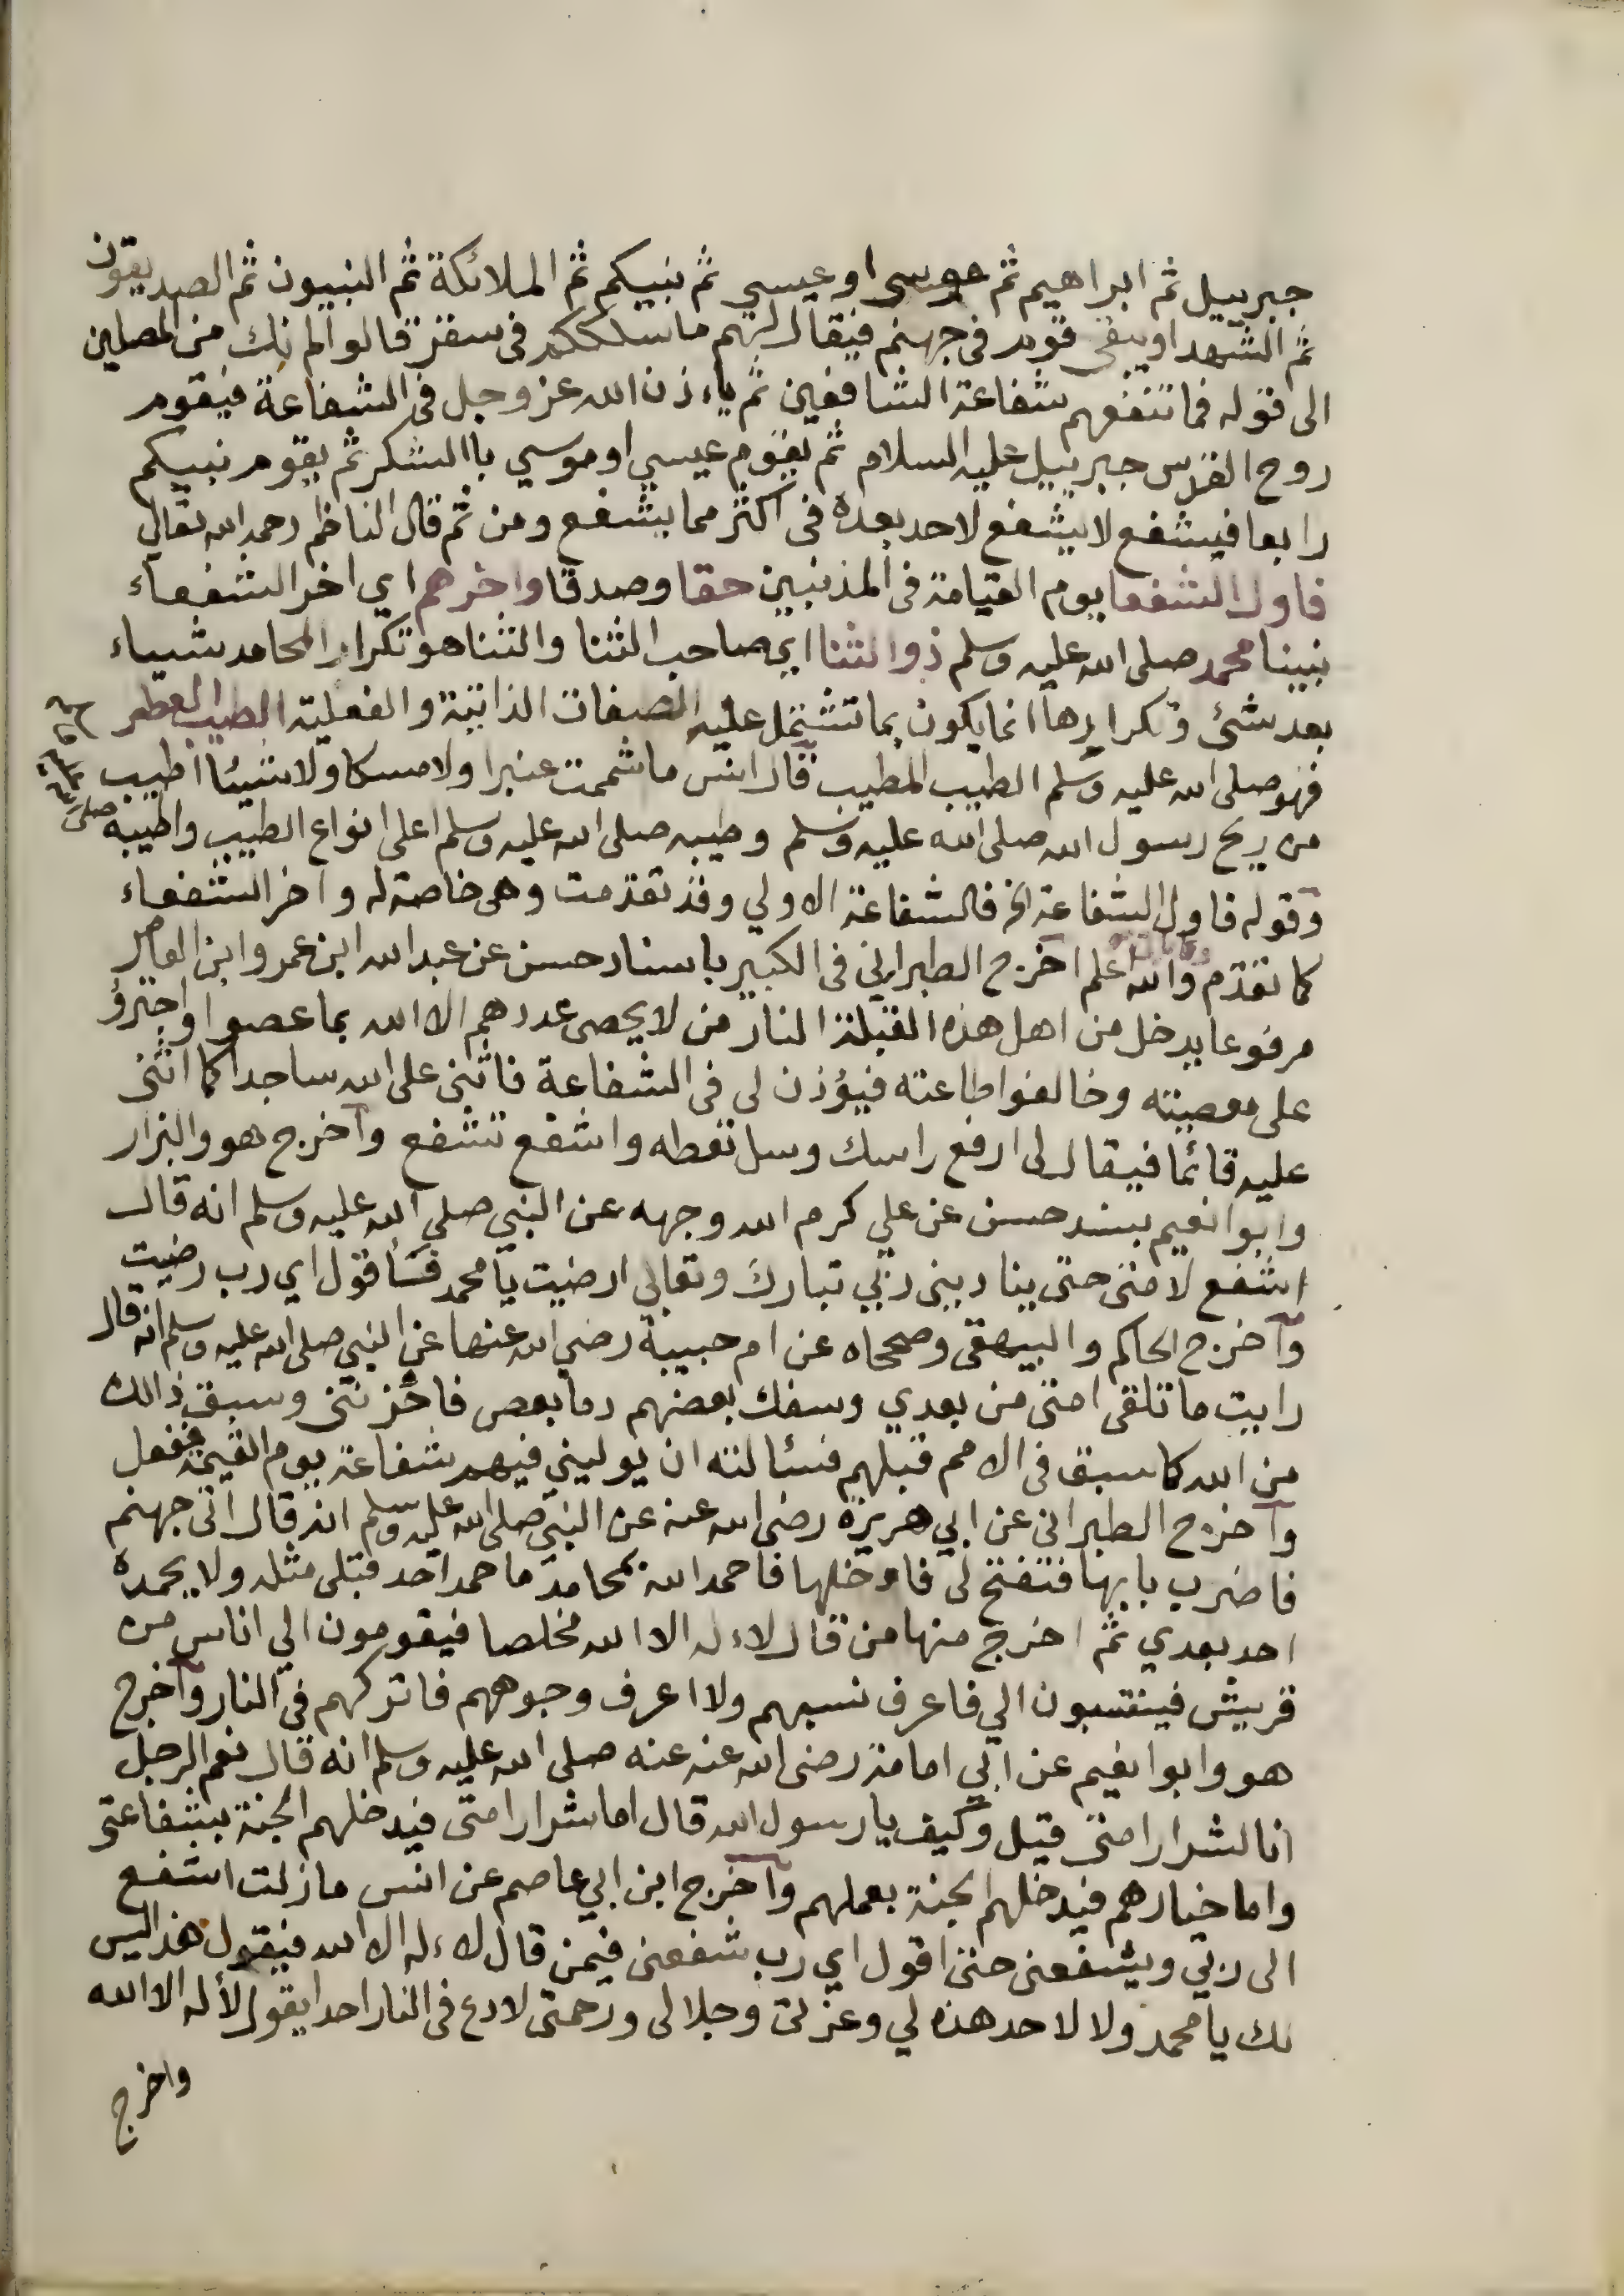 جبرييل ثم ابراهيم ثم موسى او عيسي ثم نبيكم ثم الملائكة ثم النبيون ثم الصديقون
ثم الشهدا ويبقى قوم فى جهنم فيقال لهم ما سلككم فى سقر قالوا لم نك من المصلين
الى قوله فما تنفعهم شفاعة الشافعين ثم ياءذن الله عز وجل فى الشفاعة فيقوم
روح القدس جبرييل عليه السلام ثم يقوم عيسي او موسي باالشكر ثم يقوم نبيكم
رابعا فيشفع لا يشفع لاحد بعده فى اكثر مما يشفع ومن ثم قال الناظم رحمه الله تعالي
فاول الشفعا يوم القيامة فى المذنبين حقا وصدقا واخرهم اي اخر الشفعاء
نبينا محمد صلى الله عليه وسلم ذوالثنا اي صاحب الثنا والثنا هو تكرار المحامد شيياء
بعد شئ وتكرايرها انما يكون بما تشتمل عليه الصفات الذاتية والفعلية الطيب العطر
فهو صلى الله عليه وسلم الطيب المطيب قال انس ما شممت عنبرا ولا مسكا ولا شيئا اطيب
من ريح رسول الله صلى الله عليه وسلم وطيبه صلى الله عليه وسلم اعلى انواع الطيب واطيبه صلى
وقوله فاول الشفاعة الخ فالشفاعة الاولي وقد تقدمت وهى خاصة له واخر الشفعاء
كما تقدم والله اعلم اخرج الطبراني فى الكبير باسناد حسن عن عبد الله ابن عمر وابن العاص
مرفوعا يدخل من اهل هذه القبلة النار من لا يحصى عددهم الا الله بما عصوا واجترؤ
على معصيته وخالفوا طاعته فيؤذن لى فى الشفاعة فاثنى على الله ساجدا كما اثنى
عليه قائما فيقال لى ارفع راسك وسل تعطه واشفع تشفع وآخرج هو والبزار
وابوا نعيم بسند حسن عن علي كرم الله وجهه عن النبي صلي الله عليه وسلم انه قال
اشفع لامتى حتى ينادينى ربي تبارك وتعالي ارضيت يا محمد فسأقول اي رب رضيت
وآخرج الحاكم والبيهقى وصححاه عن ام حبيبة رضي الله عنها عن النبي صلى الله عليه وسلم انه قال
رايت ما تلقى امتى من بعدي وسفك بعضهم دما بعض فاحزنني وسبق ذالك
من الله كما سبق فى الامم قبلهم فسئالته ان يوليني فيهم شفاعة يوم القيمة ففعل
وآخرج الطبرانى عن ابي هريرة رضى الله عنه عن النبي صلى الله عليه وسلم انه قال اتى جهنم
فاضرب بابها فتفتح لى فادخلها فاحمد الله بمحامد ما حمد احد قبلى مثله ولا يحمده
احد بعدي ثم اخرج منها من قال لاءله الا الله مخلصا فيقومون الي اناس من
قريش فينتسبون الي فاعرف نسبهم ولا اعرف وجوههم فاتركهم فى النار وآخرج
هو وابوا نعيم عن ابي امامة رضى الله عنه عنه صلى الله عليه وسلم انه قال نعم الرجل
انا لشرار امتى قيل وكيف يا رسول الله قال اما شرار امتى فيدخلهم الجنة بشفاعتى
واما خيارهم فيدخلهم الجنة بعملهم وآخرج ابن ابي عاصم عن انس ما زلت اشفع
الى ربي ويشفعنى حتى اقول اي رب شفعنى فيمن قال لاءله الا الله فيقول هذا ليس
لك يا محمد ولا لاحد هذه لي وعزتى وجلالى ورحمتى لا دع فى النار احدا يقول لأله الا الله
واخرج